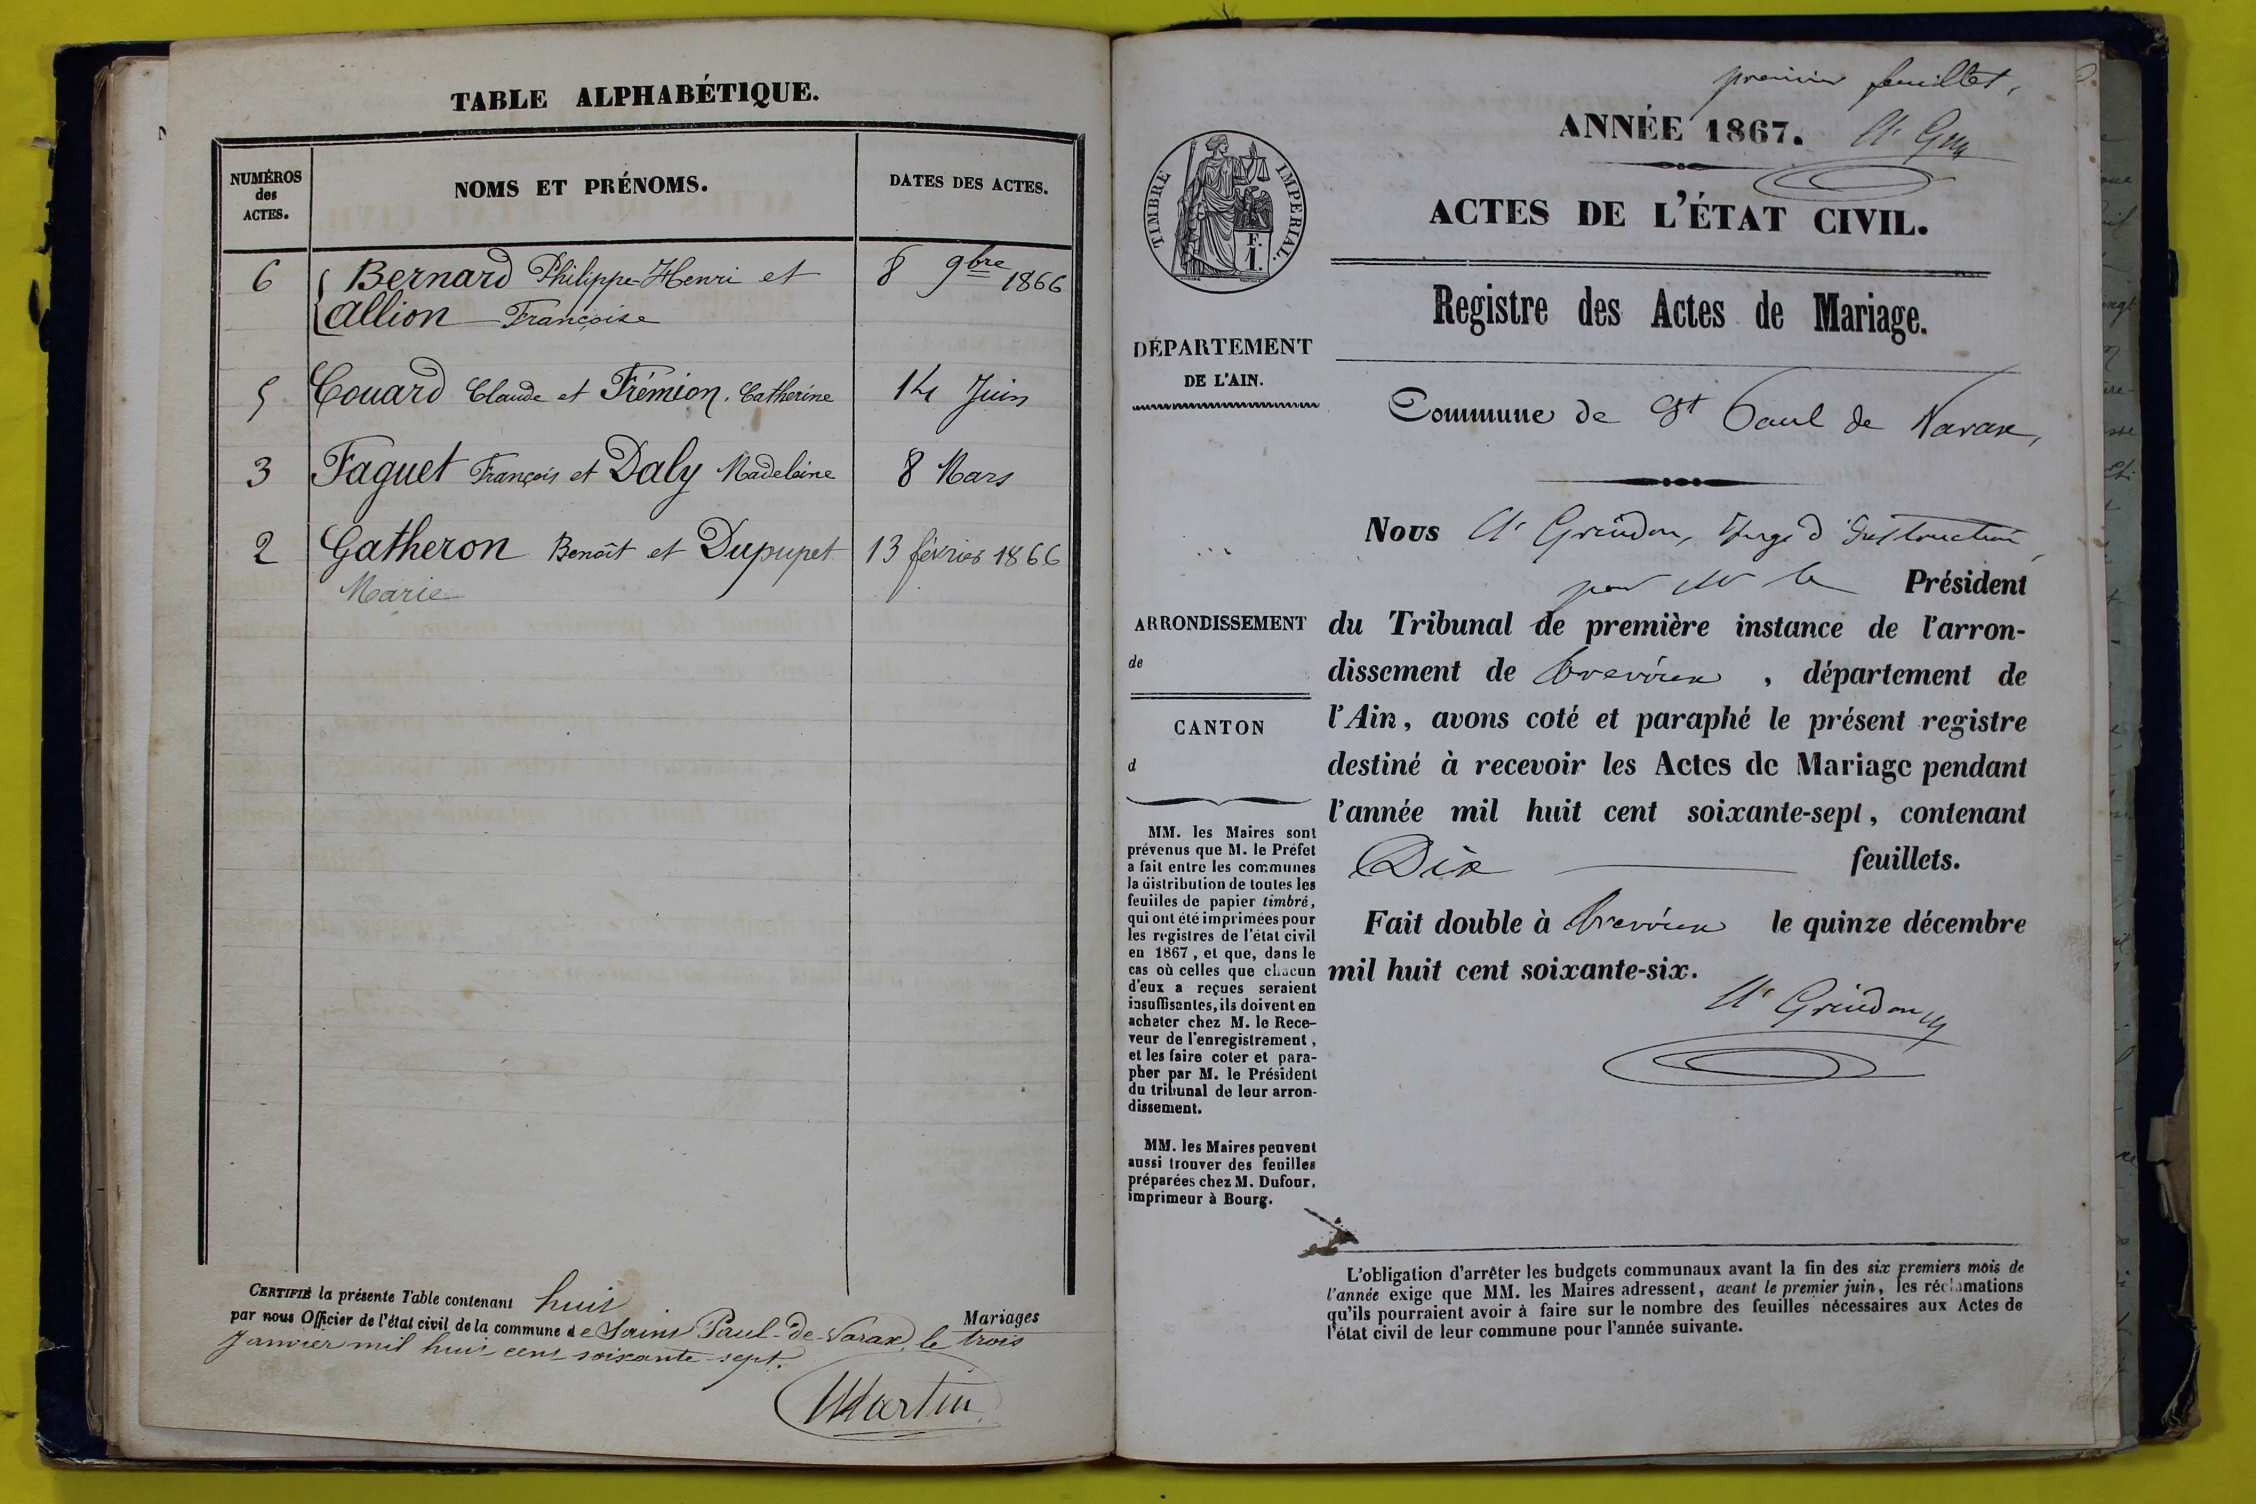 TABLE ALPHABÉTIQUE.
NUMÉROS
des
ACTES.
NOMS ET PRÉNOMS.
DATES DES ACTES.
6 Bernard Philippe-Henri et 8 9bre 1866
Allion Françoise
5 Couard Claude et Frémion, Catherine 14 Juin
3 Faguet François et Daly Madeleine 8 Mars
2 Gatheron Benoît et Dupupet 13 février 1866
Marie
CERTIFIÉ la présente Table contenant huit Mariages
par nous Officier de l'état civil de la commune de Saint Paul-de-Varax, le trois
Janvier mil huit cent soixante-sept.
Martin
premier feuillet,
ANNÉE 1867.
TIMBRE IMPERIAL.
F.
1.
ACTES DE L'ÉTAT CIVIL.
Registre des Actes de Mariage.
DÉPARTEMENT
DE L'AIN.
Commune de St Paul de Varax,
Nous Grindon, Juge d'Instruction,
pour Mr le Président
ARRONDISSEMENT
de
CANTON
d
du Tribunal de première instance de l'arron-
dissement de Trévoux, département de
l'Ain, avons coté et paraphé le présent registre
destiné à recevoir les Actes de Mariage pendant
l'année mil huit cent soixante-sept, contenant
Dix feuillets.
Fait double à Trévoux le quinze décembre
mil huit cent soixante-six.
Grindon
MM. les Maires sont
prévenus que M. le Préfet
a fait entre les communes
la distribution de toutes les
feuilles de papier timbré,
qui ont été imprimées pour
les registres de l'état civil
en 1867, et que, dans le
cas où celles que chacun
d'eux a reçues seraient
insuffisantes, ils doivent en
acheter chez M. le Rece-
veur de l'enregistrement,
et les faire coter et para-
pher par M. le Président
du tribunal de leur arron-
dissement.
MM. les Maires peuvent
aussi trouver des feuilles
préparées chez M. Dufour,
imprimeur à Bourg.
L'obligation d'arrêter les budgets communaux avant la fin des six premiers mois de
l'année exige que MM. les Maires adressent, avant le premier juin, les réclamations
qu'ils pourraient avoir à faire sur le nombre des feuilles nécessaires aux Actes de
l'état civil de leur commune pour l'année suivante.